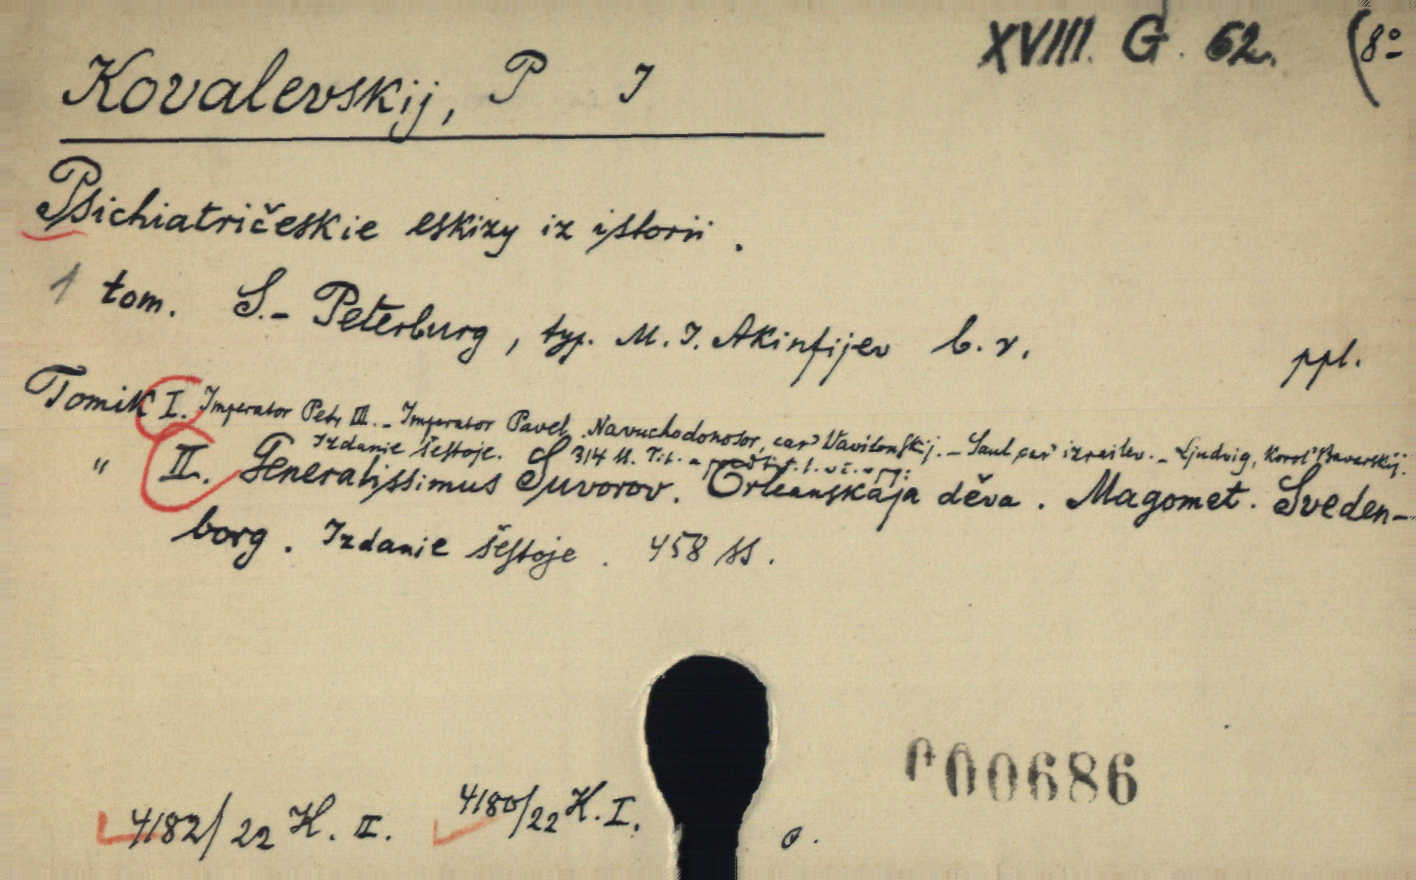 XVIII. G. 62. (8º
Kovalevskij, P I
Psichiatričeskie eskizy iz istorii.
1 tom. S.-Peterburg, typ. M. I. Akinfijev b. r. ppl.
Tomik I. Imperator Petr III. - Imperator Pavel. Navuchodonosor, car' Vavilonskij. - Saul car' izrailev. - Ljudvig, Korol' Bavarskij.
Izdanie šestoje. 314 ss.
" II. Generalissimus Suvorov. Orleanskaja děva. Magomet. Sveden-
borg. Izdanie šestoje. 458 ss.
00686
4182/22 H. II. 4180/22 H. I. o.